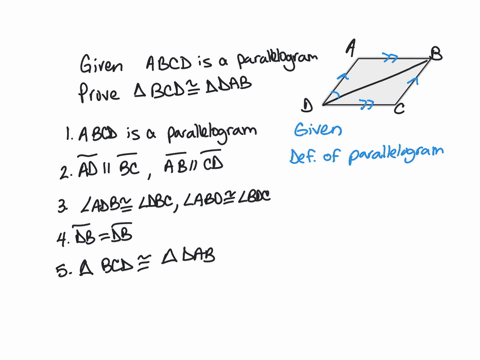 Given ABCD is a parallelogram
Prove △BCD ≅ △DAB
A
B
D
C
1. ABCD is a parallelogram
Given
2. AD || BC , AB // CD
Def. of parallelogram
3. ∠ADB ≅ ∠DBC, ∠ABD ≅ ∠BDC
4. DB = DB
5. △ BCD ≅ △ DAB